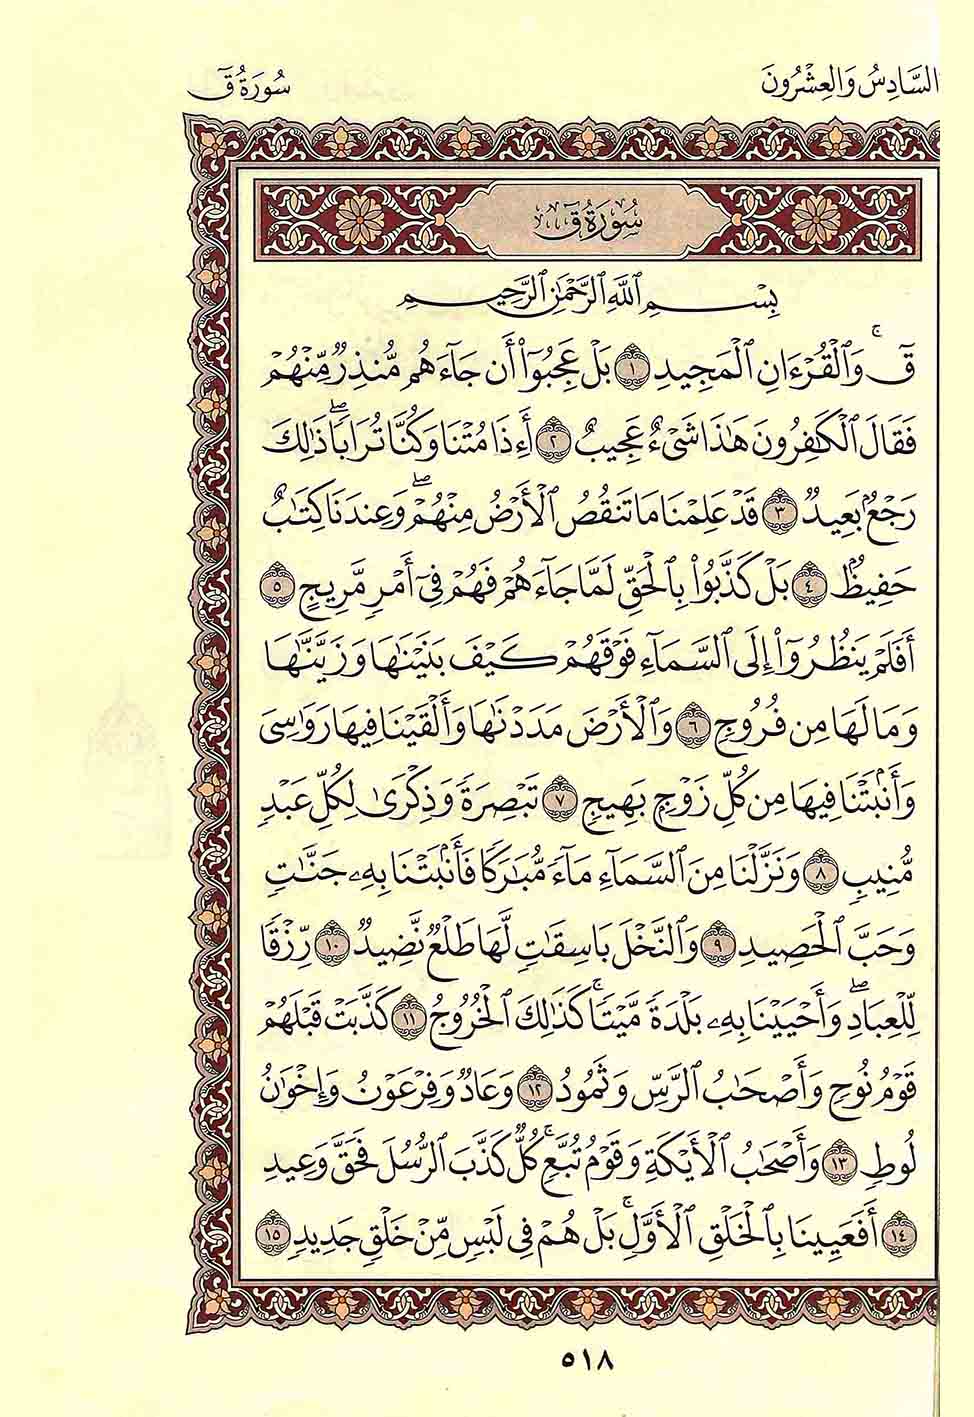 السَّادِسُ وَالعِشْرُونَ
سُورَةُ قٓ
سُورَةُ قٓ
بِسْمِ ٱللَّهِ ٱلرَّحْمَٰنِ ٱلرَّحِيمِ
قٓۚ وَٱلْقُرْءَانِ ٱلْمَجِيدِ ١ بَلْ عَجِبُوٓا۟ أَن جَآءَهُم مُّنذِرٌ مِّنْهُمْ
فَقَالَ ٱلْكَٰفِرُونَ هَٰذَا شَىْءٌ عَجِيبٌ ٢ أَءِذَا مِتْنَا وَكُنَّا تُرَابًاۖ ذَٰلِكَ
رَجْعٌۢ بَعِيدٌ ٣ قَدْ عَلِمْنَا مَا تَنقُصُ ٱلْأَرْضُ مِنْهُمْۖ وَعِندَنَا كِتَٰبٌ
حَفِيظٌۢ ٤ بَلْ كَذَّبُوا۟ بِٱلْحَقِّ لَمَّا جَآءَهُمْ فَهُمْ فِىٓ أَمْرٍ مَّرِيجٍ ٥
أَفَلَمْ يَنظُرُوٓا۟ إِلَى ٱلسَّمَآءِ فَوْقَهُمْ كَيْفَ بَنَيْنَٰهَا وَزَيَّنَّٰهَا
وَمَا لَهَا مِن فُرُوجٍ ٦ وَٱلْأَرْضَ مَدَدْنَٰهَا وَأَلْقَيْنَا فِيهَا رَوَٰسِىَ
وَأَنۢبَتْنَا فِيهَا مِن كُلِّ زَوْجٍۭ بَهِيجٍ ٧ تَبْصِرَةً وَذِكْرَىٰ لِكُلِّ عَبْدٍ
مُّنِيبٍ ٨ وَنَزَّلْنَا مِنَ ٱلسَّمَآءِ مَآءً مُّبَٰرَكًا فَأَنۢبَتْنَا بِهِۦ جَنَّٰتٍ
وَحَبَّ ٱلْحَصِيدِ ٩ وَٱلنَّخْلَ بَاسِقَٰتٍ لَّهَا طَلْعٌ نَّضِيدٌ ١٠ رِّزْقًا
لِّلْعِبَادِۖ وَأَحْيَيْنَا بِهِۦ بَلْدَةً مَّيْتًاۚ كَذَٰلِكَ ٱلْخُرُوجُ ١١ كَذَّبَتْ قَبْلَهُمْ
قَوْمُ نُوحٍ وَأَصْحَٰبُ ٱلرَّسِّ وَثَمُودُ ١٢ وَعَادٌ وَفِرْعَوْنُ وَإِخْوَٰنُ
لُوطٍ ١٣ وَأَصْحَٰبُ ٱلْأَيْكَةِ وَقَوْمُ تُبَّعٍۚ كُلٌّ كَذَّبَ ٱلرُّسُلَ فَحَقَّ وَعِيدِ
١٤ أَفَعَيِينَا بِٱلْخَلْقِ ٱلْأَوَّلِۚ بَلْ هُمْ فِى لَبْسٍ مِّنْ خَلْقٍ جَدِيدٍ ١٥
٥١٨